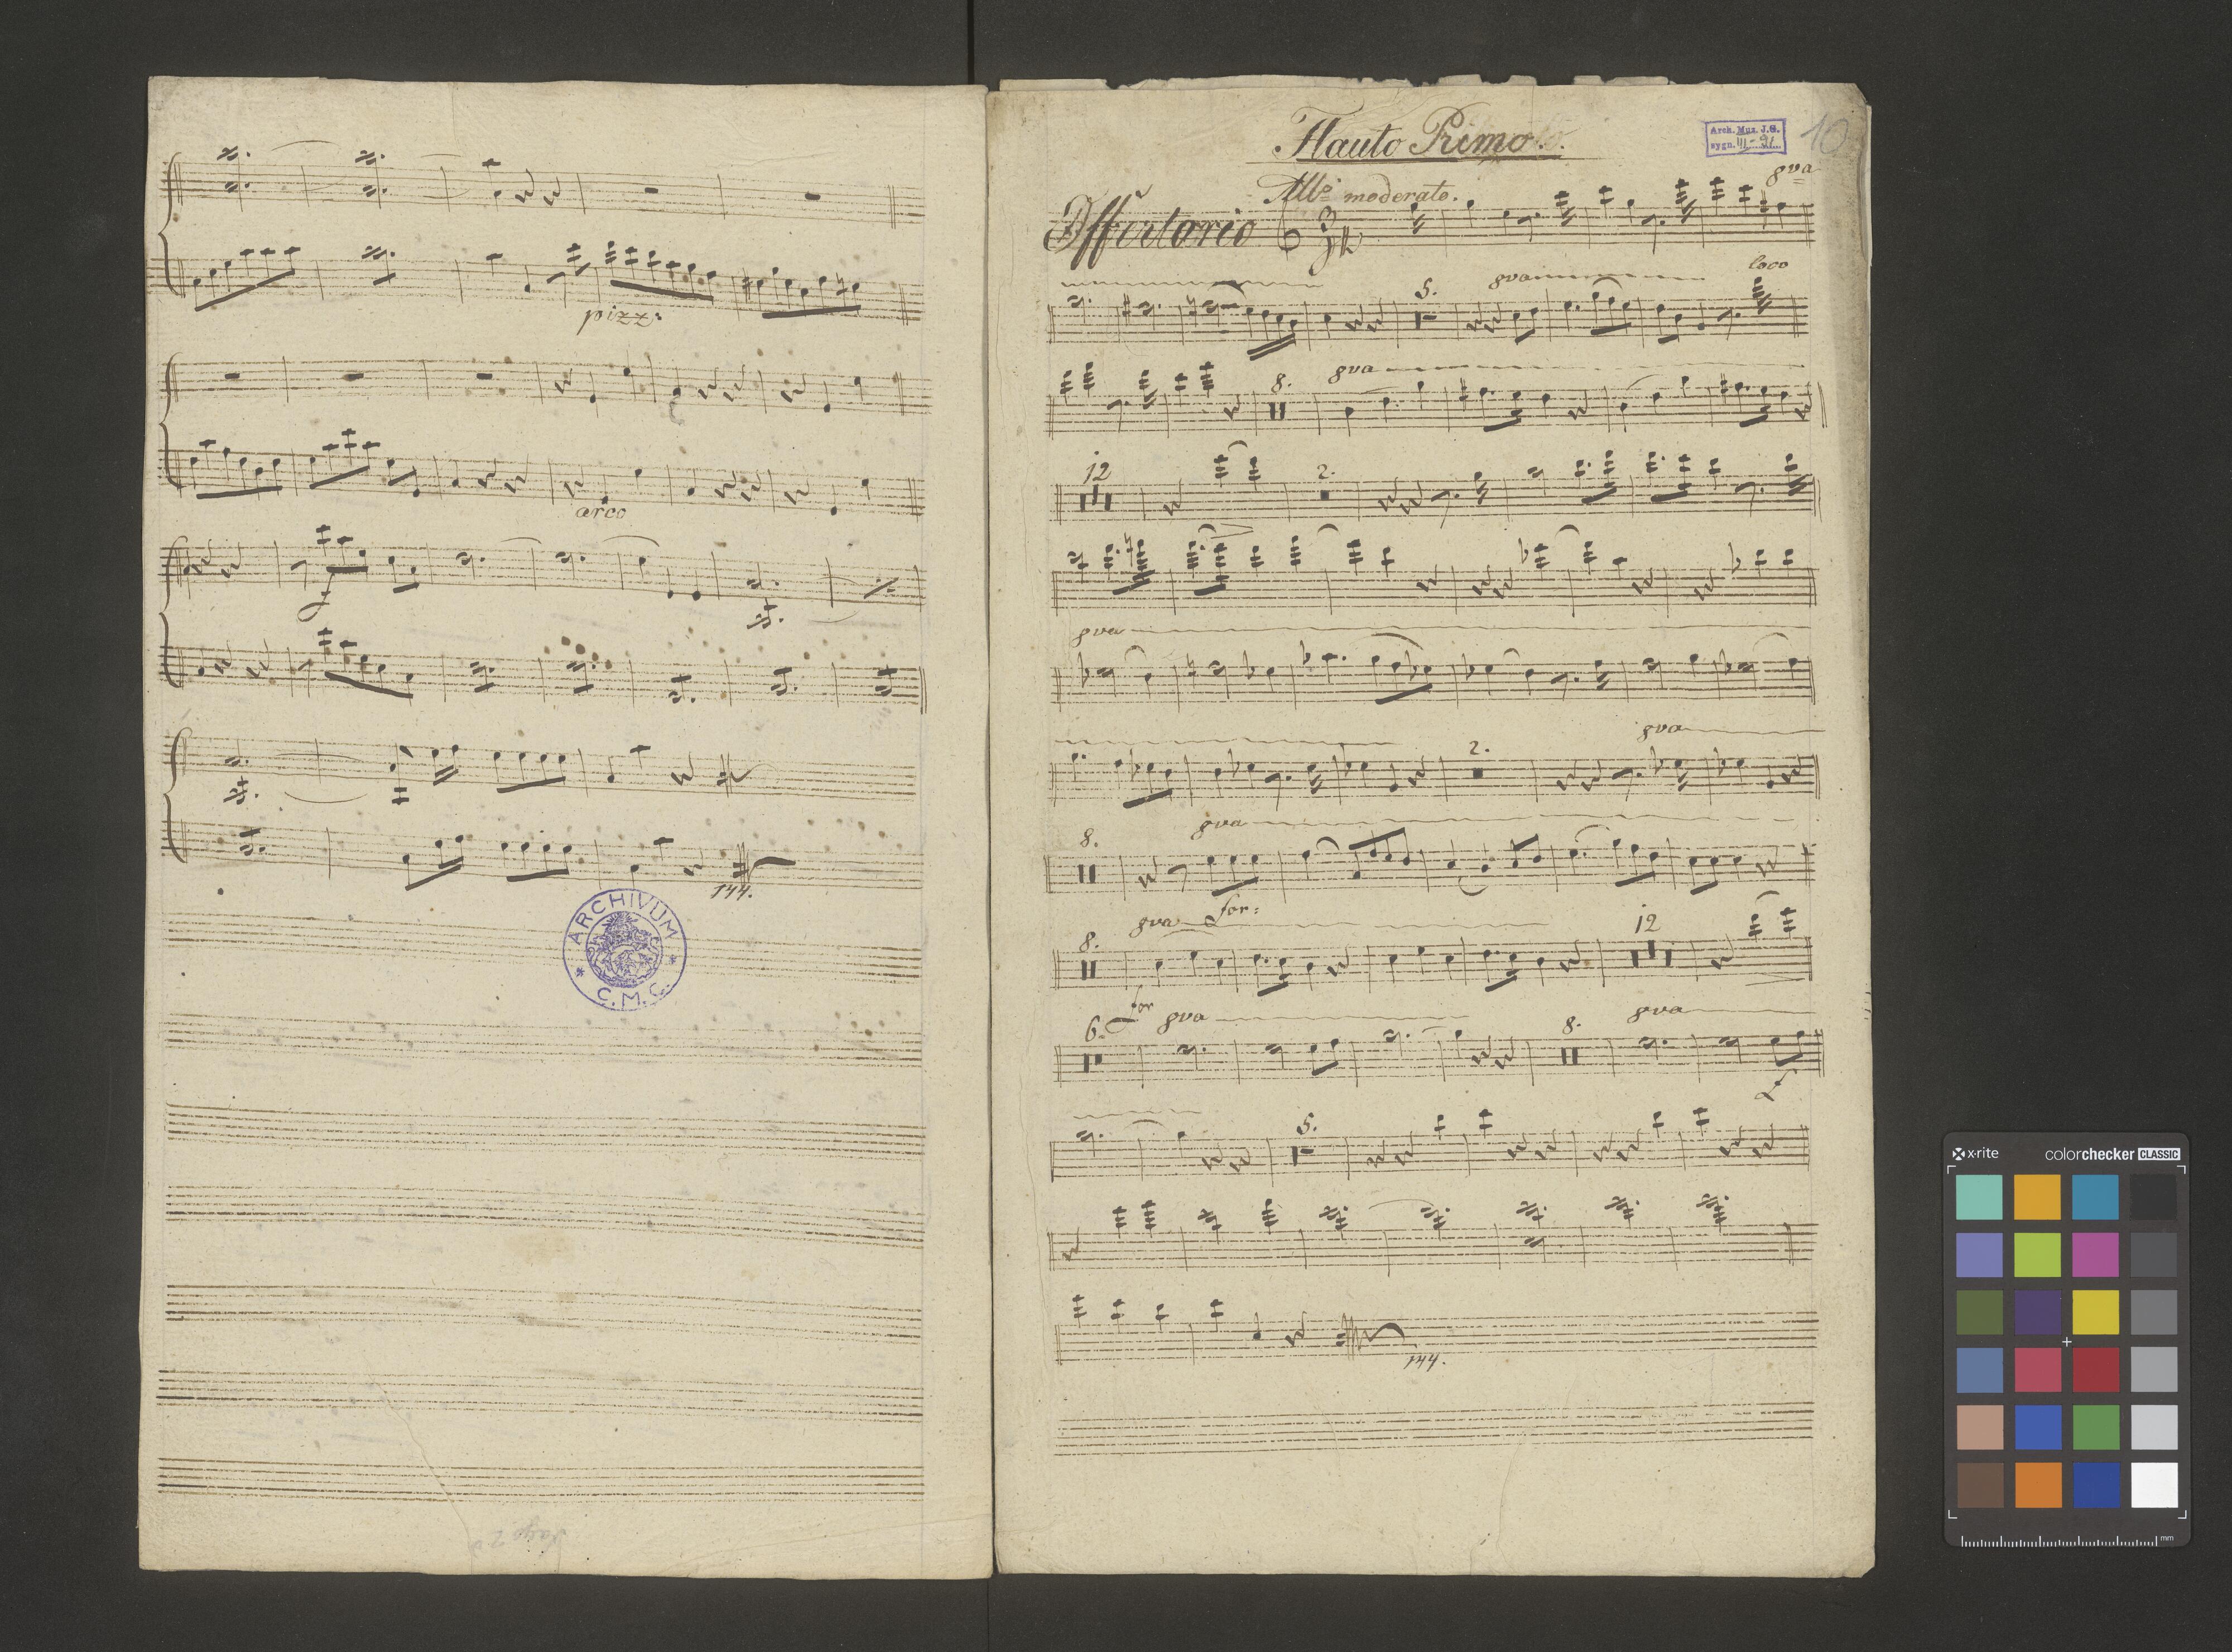 pizz:
arco
f
144.
ARCHIVUM
* C.M.C. *
Flauto Primo.
Arch. Muz. J.G.
sygn. III-91
10
Offertorio
Allo moderato.
3
8va
5.
8va
loco
8.
8va
12
2.
8va
2.
8va
8.
8va
8.
8va for:
12
6. for 8va
8.
8va
5.
144.
x-rite
colorchecker CLASSIC
mm